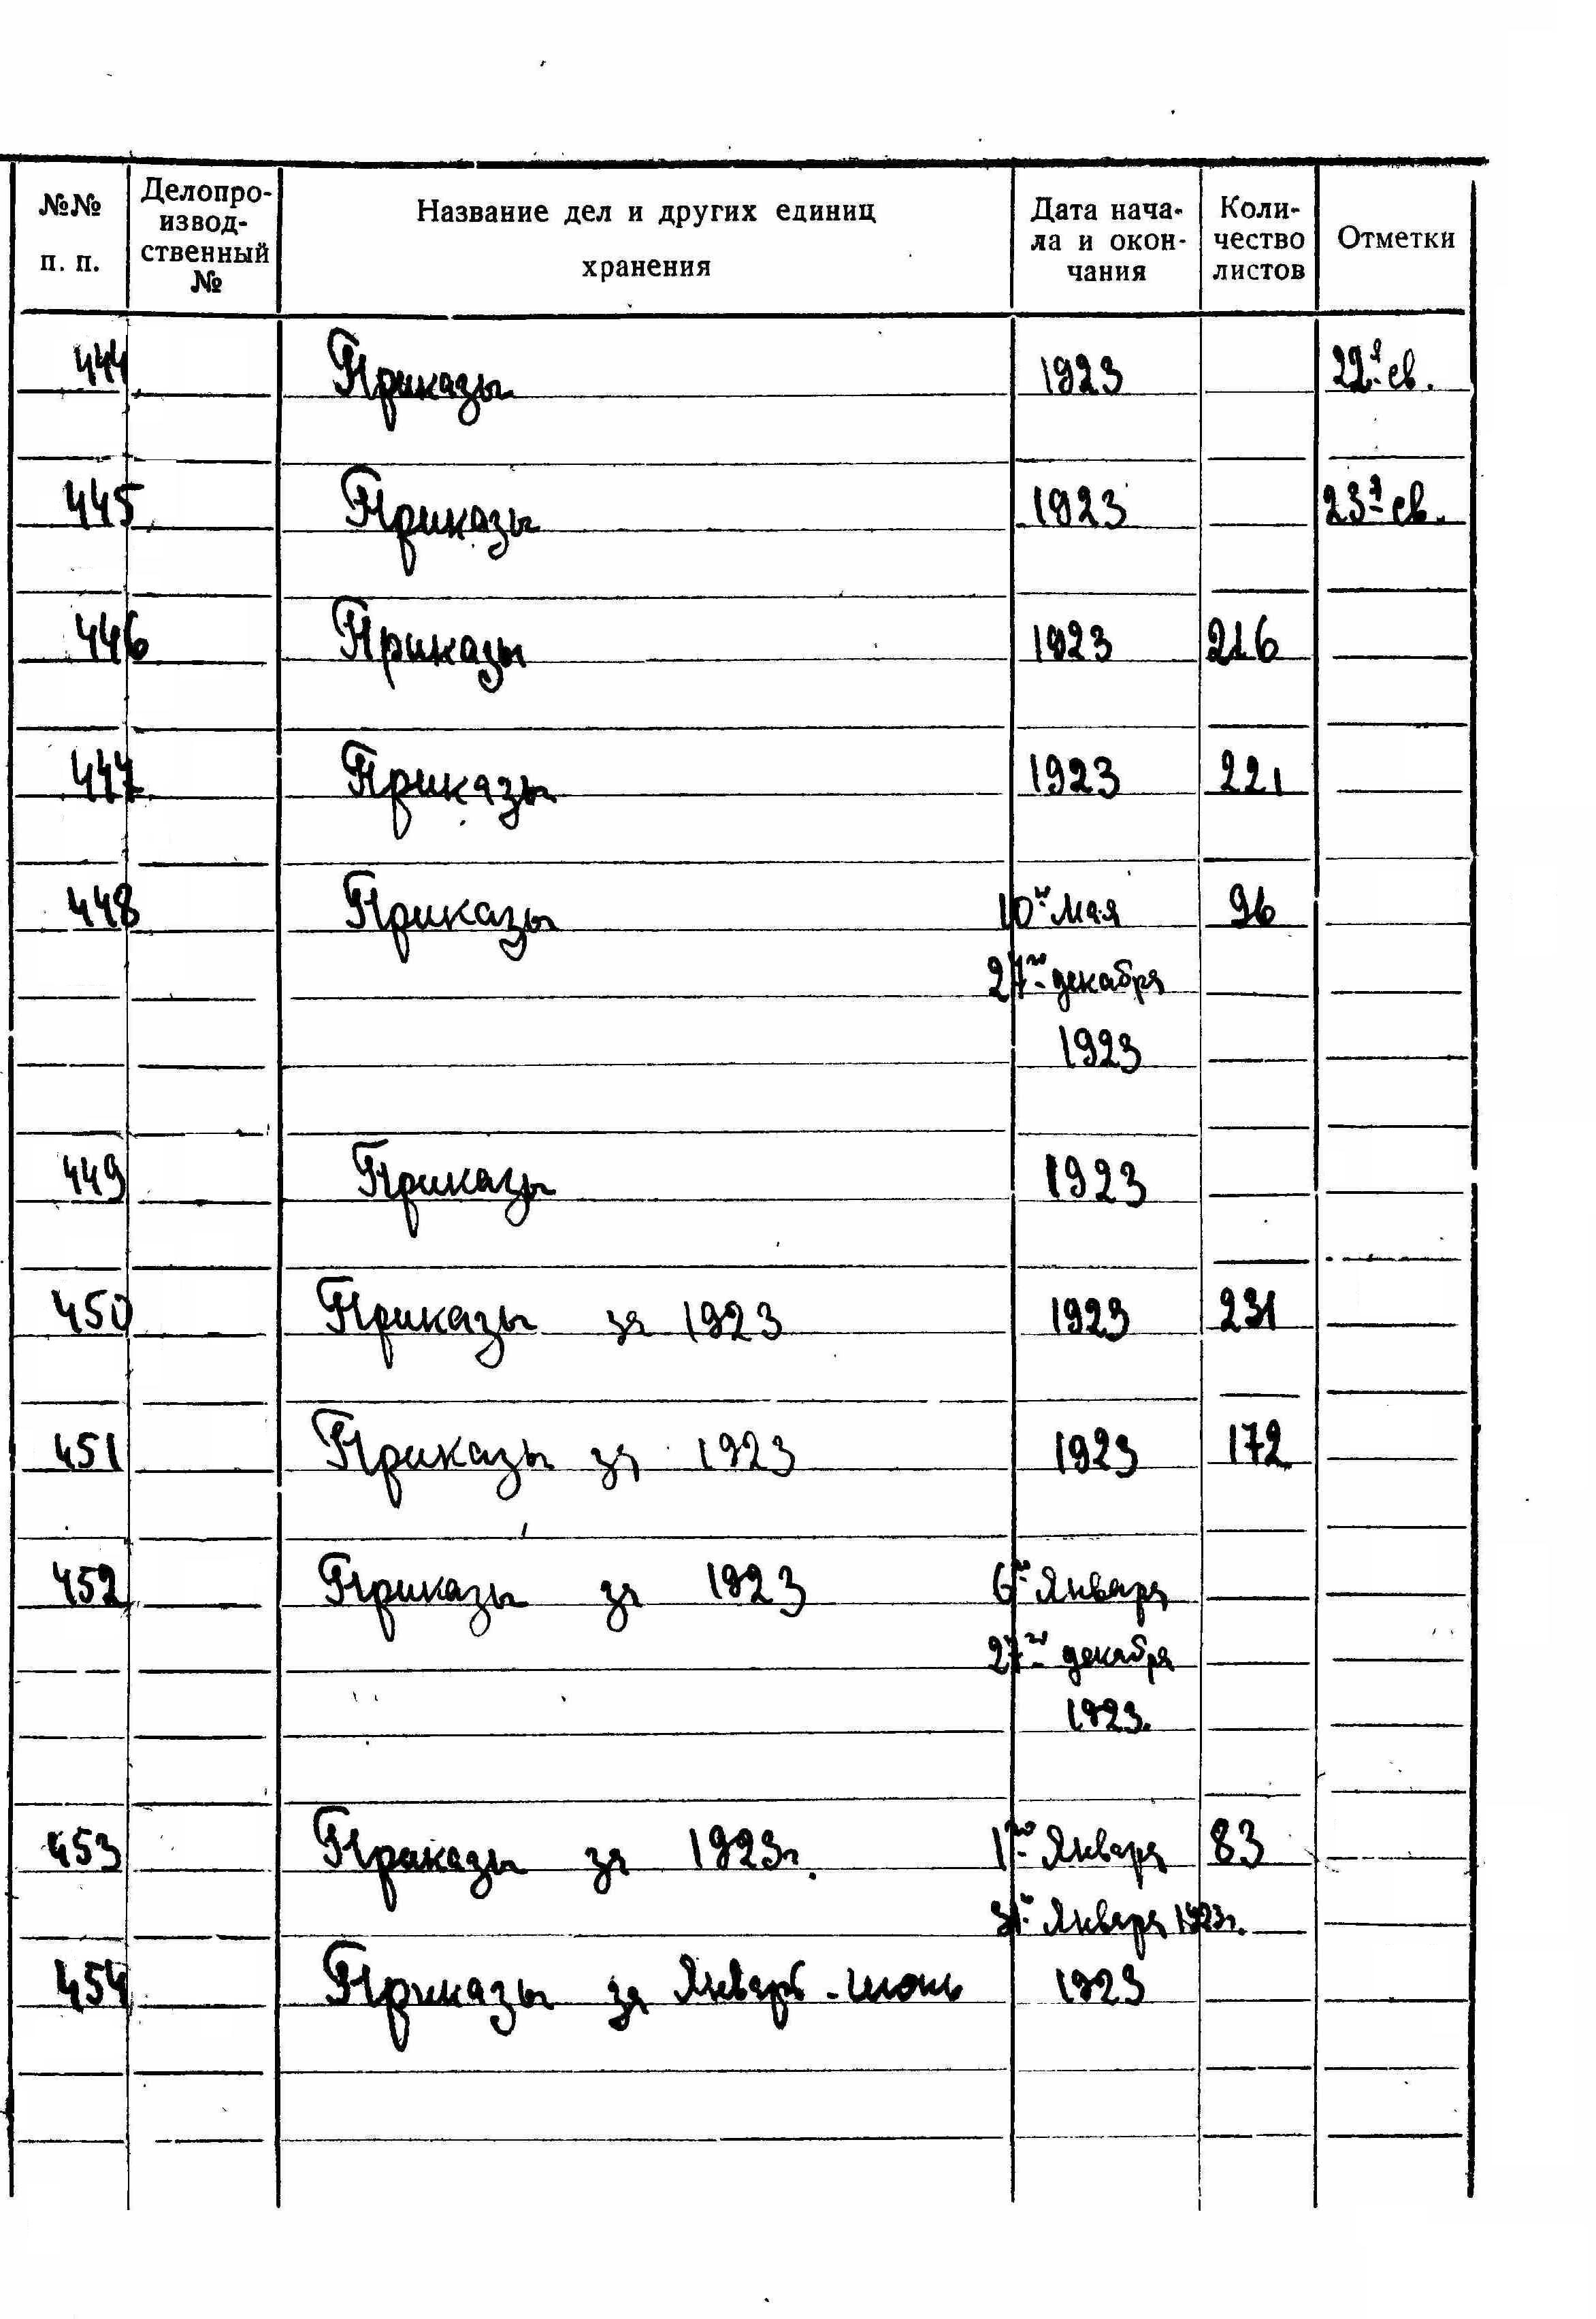 №№ п. п. Делопро-извод-ственный № Название дел и других единиц хранения Дата нача-ла и окон-чания Коли-чество листов Отметки
444 Приказы 1923 22я св.
445 Приказы 1923 23я св.
446 Приказы 1923 216
447 Приказы 1923 221
448 Приказы 10го мая 96
27го декабря
1923
449 Приказы 1923
450 Приказы за 1923 1923 231
451 Приказы за 1923 1923 172
452 Приказы за 1923 6го Января
27го декабря
1923.
453 Приказы за 1923г. 1го Января 83
31го Января 1923г.
454 Приказы за Январь-июнь 1923